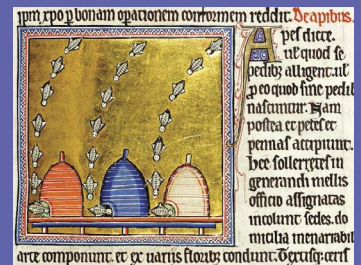 ipm xpo p bonam opationem conformem reddit. De apibus.
Apes dicte.
ut quod se
pedib; alligent. ul
p eo quod sine pedib
nascuntur. Nam
postea et pedes et
pennas accipiunt.
hee sollertes in
generandi mellis
officio assignatas
incolunt sedes. do
micilia inenarrabil
arte componunt. et ex uariis florib; condunt.